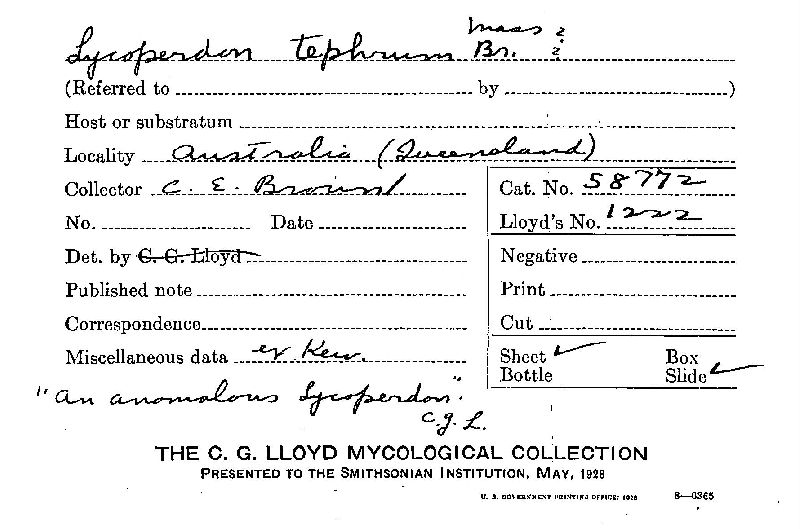 Lycoperdon tephrum Mass ?
Br. ?
(Referred to by )
Host or substratum
Locality Australia (Queensland)
Collector C. E. Brown
Cat. No. 58772
No. Date
Lloyd's No. 1222
Det. by C. G. Lloyd
Negative
Published note
Print
Correspondence
Cut
Miscellaneous data ex Kew.
Sheet ✓ Box
Bottle Slide ✓
"An anomalous Lycoperdon".
C. G. L.
THE C. G. LLOYD MYCOLOGICAL COLLECTION
PRESENTED TO THE SMITHSONIAN INSTITUTION, MAY, 1928
U. S. GOVERNMENT PRINTING OFFICE: 1928 8—6365